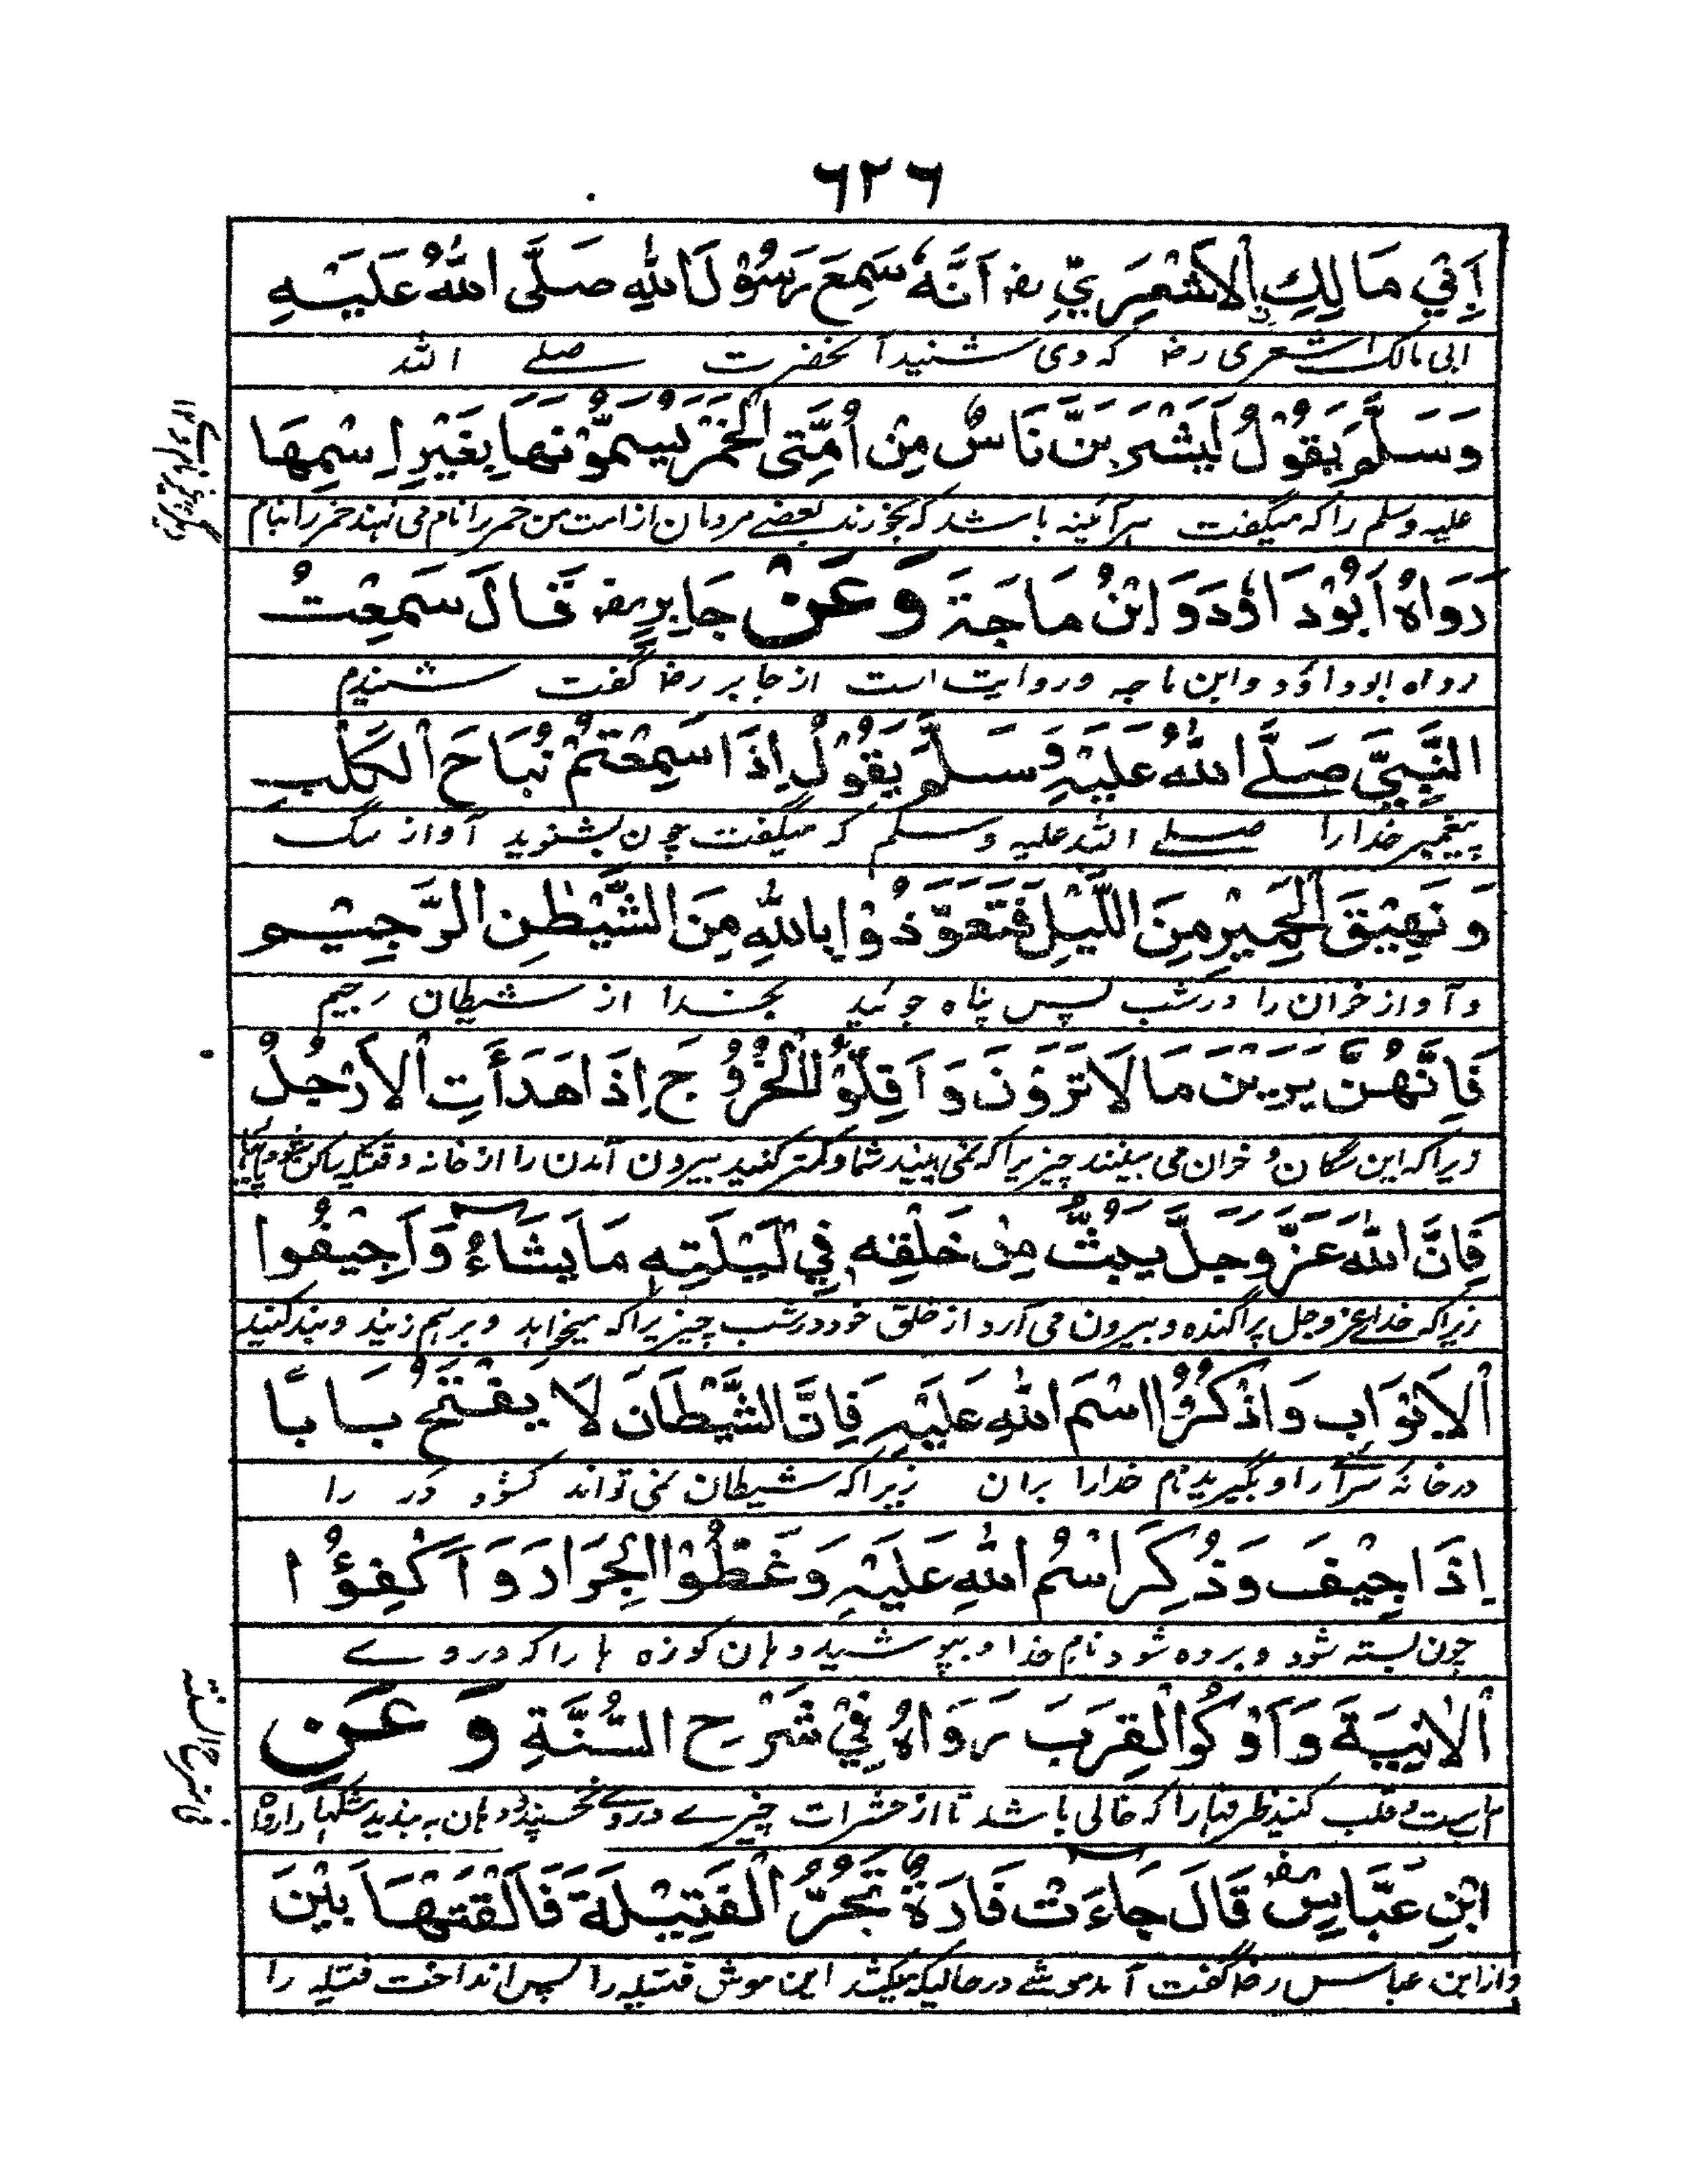 ٦٢٦
اَبِيْ مَالِكِ ࣙالْاَشْعَرِيِّ رض اَنَّهٗ سَمِعَ رَسُوْلَ اللّٰهِ صَلَّى اللّٰهُ عَلَيْهِ
ابی مالک اشعری رض که وی شنید آنحضرت صلے الله
وَسَلَّمَ يَقُوْلُ لَيَشْرَبَنَّ نَاسٌ مِنْ اُمَّتِى الْخَمْرَ يُسَمُّوْنَهَا بِغَيْرِ اِسْمِهَا
علیه وسلم را که میگفت هر آئینه باشد که بخورند بعضے مردمان از امت من خمر را نام می نهند خمر را بنام
رَوَاهُ اَبُوْدَاوٗدَ وَابْنُ مَاجَةَ وَعَنْ جَابِرٍ رض قَالَ سَمِعْتُ
رواه ابوداؤد وابن ماجه وروایت است از جابر رض گفت شنیدم
النَّبِيَّ صَلَّے اللّٰهُ عَلَيْهِ وَسَلَّمَ يَقُوْلُ اِذَا سَمِعْتُمْ نُبَاحَ الْكَلْبِ
پیغمبر خدا را صلے الله علیه وسلم که میگفت چون بشنوید آواز سگ
وَنَهِيْقَ الْحَمِيْرِ مِنَ اللَّيْلِ فَتَعَوَّذُوْا بِاللّٰهِ مِنَ الشَّيْطٰنِ الرَّجِيْمِ
و آواز خران را در شب پس پناه جوئید بخدا از شیطان رجیم
فَاِنَّهُنَّ يَرَيْنَ مَا لَا تَرَوْنَ وَاَقِلُّوا الْخُرُوْجَ اِذَا هَدَأَتِ الْاَرْجُلُ
زیرا که این سگان و خران می بینند چیزیرا که نمی بینید شما و کمتر کنید بیرون آمدن را از خانه وقتیکه ساکن شود پایها
فَاِنَّ اللّٰهَ عَزَّوَجَلَّ يَبُثُّ مِنْ خَلْقِهٖ فِيْ لَيْلَتِهٖ مَا يَشَاءُ وَاَجِيْفُوا
زیرا که خدای عزوجل پراگنده و بیرون می آرد از خلق خود در شب چیزیرا که میخواهد و برهم زنید و بند کنید
الْاَبْوَابَ وَاذْكُرُوا اسْمَ اللّٰهِ عَلَيْهِ فَاِنَّ الشَّيْطَانَ لَا يَفْتَحُ بَابًا
در خانه سرا را و بگیرید نام خدا را بران زیرا که شیطان نمی تواند کشود در را
اِذَا اجِيْفَ وَذُكِرَ اسْمُ اللّٰهِ عَلَيْهِ وَغَطُّوْا الْجِرَارَ وَاَكْفِؤُا
چون بسته شود و برده شود نام خدا و بپوشید دهان کوزه ها را که در وے
الْاٰنِيَةَ وَاَوْكُوا الْقِرَبَ رَوَاهُ فِيْ شَرْحِ السُّنَّةِ وَعَنِ
قلب کنید ظرفها را که خالی باشد تا از حشرات چیزے در وے دهان به بندید مشکها را رواه
ابْنِ عَبَّاسٍ رض قَالَ جَاءَتْ فَارَةٌ تَجُرُّ الْفَتِيْلَةَ فَاَلْقَتْهَا بَيْنَ
و از ابن عباس رض گفت آمد موشے در حالیکه میکشد این موش فتیله را پس انداخت فتیله را